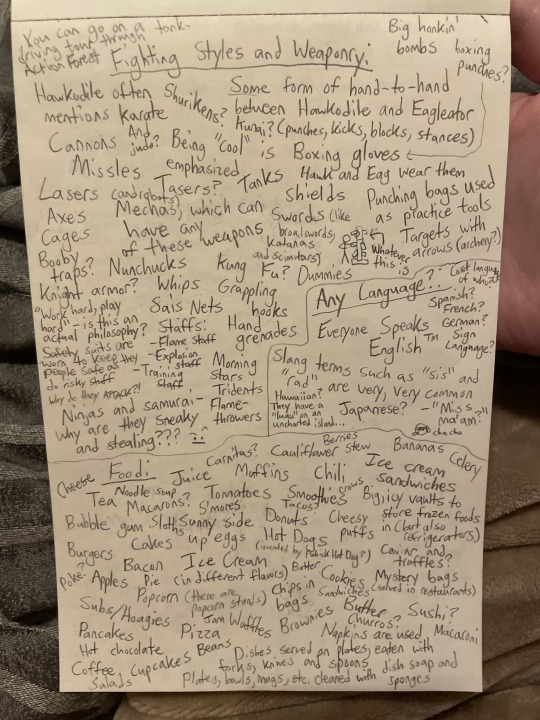 You can go on a tank-
driving tour through
Action Forest
Big honkin'
bombs boxing
punches?
Fighting Styles and Weaponry:
Hawkodile often
mentions karate
And
judo?
Shurikens?
Kunai?
Some form of hand-to-hand
between Hawkodile and Eagleator
(punches, kicks, blocks, stances)
Cannons
Being "cool" is
emphasized
Boxing gloves
Hawk and Eag wear them
Missles
Lasers
(and robots)
Tasers?
Tanks
Shields
Punching bags used
as practice tools
Axes
Mechas, which can
have any
of these weapons
Swords (like
broadswords,
katanas
and scimitars)
Targets with
arrows (archery?)
Cages
Booby
traps?
Nunchucks
Kung Fu?
Dummies
Whatever
this is
Knight armor?
Whips
Grappling
hooks
"Work hard, play
hard" - is this an
actual philosophy?
Sais
Nets
Hand
grenades
Staffs:
-Flame staff
-Explosion
staff
-Training
staff
Safety suits are
worn to keep the
people safe as they
do risky stuff
Why do they ATTACK?!
Morning
Stars
Tridents
Flame-
throwers
Ninjas and samurai-
why are they sneaky
and stealing???
Any Language?:
Lost language
of who at?
Spanish?
French?
German?
Sign
Language?
Everyone Speaks
English™
Slang terms such as "sis" and
"rad" are very, very common
Hawaiian?
They have a
"luau" on an
uncharted island...
Japanese?
-"Miss,
ma'am?"
chacha
Food:
Cheese
Carnitas?
Cauliflower stew
Berries
Bananas
Celery
Noodle soup
Juice
Muffins
Chili
Ice cream
sandwiches
Tea
Macarons?
S'mores
Tomatoes
Smoothies
Tacos?
Big icy vaults to
store frozen foods
in (but also
refrigerators)
Bubble gum
Sunny side
up eggs
Donuts
Cheesy
puffs
Cakes
Hot Dogs
(invented by Patrick Hot Dog?)
Caviar and
truffles?
Burgers
Bacon
Ice Cream
Butter
Cookies
Mystery bags
(served in restaurants)
Poke?
Apples
Pie (in different flavors)
Popcorn (there are
popcorn stands)
Chips in
bags
Sandwiches
Subs/Hoagies
Jam
Waffles
Brownies
Butter
Churros?
Sushi?
Pancakes
Pizza
Napkins are used
Macaroni
Hot chocolate
Beans
Dishes served on plates, eaten with
forks, knives and spoons
Coffee
Cupcakes
dish soap and
Salads
Plates, bowls, mugs, etc. cleaned with sponges